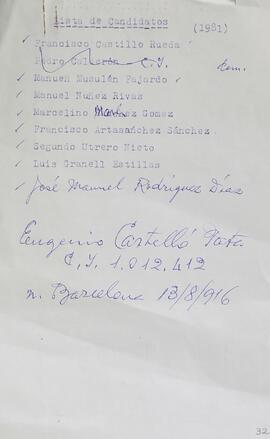 Lista de Candidatos (1981)
Francisco Castillo Rueda
Pedro Calderón C.I.
Manuel Musulén Fajardo
Manuel Nuñez Rivas
Marcelino Martínez Gomez
Francisco Artasánchez Sánchez
Segundo Utrero Nieto
Luis Granell Estillas
José Manuel Rodríguez Díaz
Eugenio Castelló Pata
C.I. 1.012.412
n. Barcelona 13/8/916
32